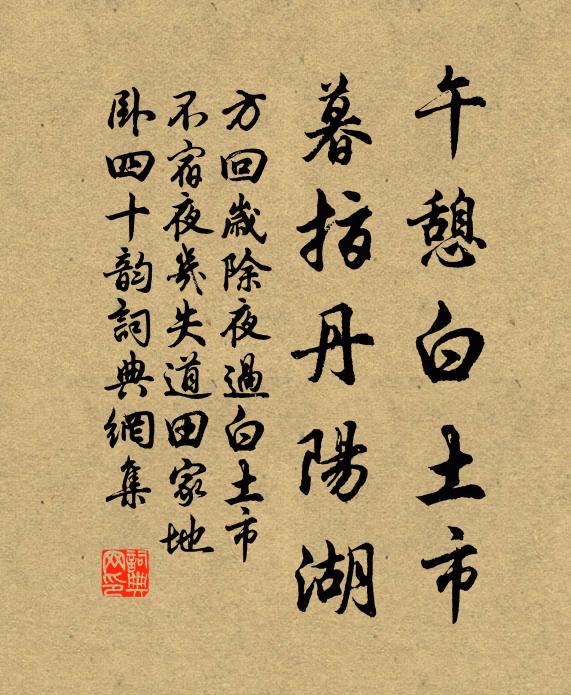 午憩白土市
暮指丹陽湖
方回歲除夜過白土市
不宿夜幾失道田家地
卧四十韵詞典網集
詞典
网印